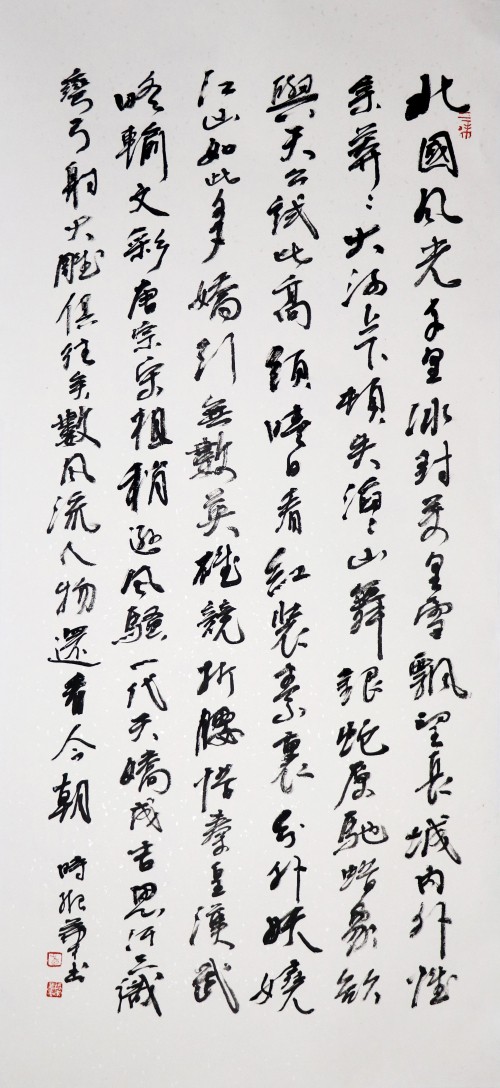 北國風光千里冰封萬里雪飄望長城內外惟
余莽〻大河上下頓失滔〻山舞銀蛇原馳蜡象欲
與天公試比高須晴日看紅裝素裹分外妖嬈
江山如此多嬌引無數英雄競折腰惜秦皇漢武
略輸文彩唐宗宋祖稍遜風騷一代天嬌成吉思汗只識
彎弓射大雕俱往矣數風流人物還看今朝
時 書